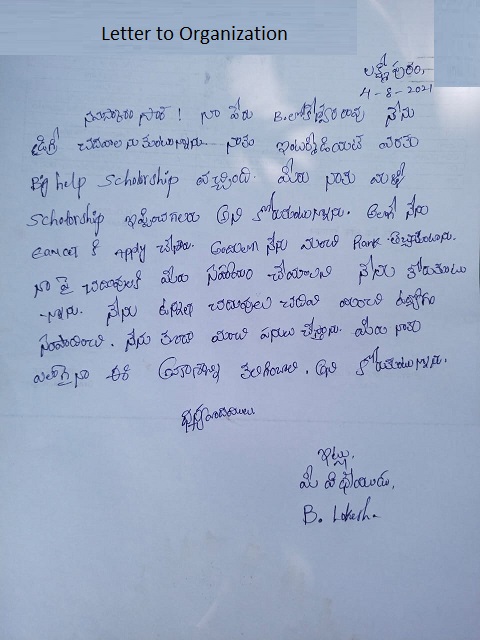 Letter to Organization
లక్ష్మీపురం,
4-8-2021
నమస్కారం సార్ ! నా పేరు B.లోకేశ్వరరావు నేను
డిగ్రీ చదవాలనుకుంటున్నాను. నాకు ఇంటర్మీడియట్ వరకు
Big help Scholorship వచ్చింది. మీరు నాకు మళ్లీ
Scholorship ఇప్పించగలరు అని కోరుకుంటున్నాను. అలాగే నేను
Eamcet కి apply చేశాను. అందులో నేను మంచి Rank తెచ్చుకుంటాను.
నా పై చదువులకి మీరు సహాయం చేయాలని నేను కోరుకుంటు
-న్నాను. నేను ఉన్నత చదువులు చదివి మంచి ఉద్యోగం
సంపాదించి. నేను కూడా మంచి పనులు చేస్తాను. మీరు నాకు
ఎలాగైనా ఈ అవకాశాన్ని కలిగించాలి. అని కోరుకుంటున్నాను.
ధన్యవాదములు
ఇట్లు,
మీ విధేయుడు,
B. Lokesh.